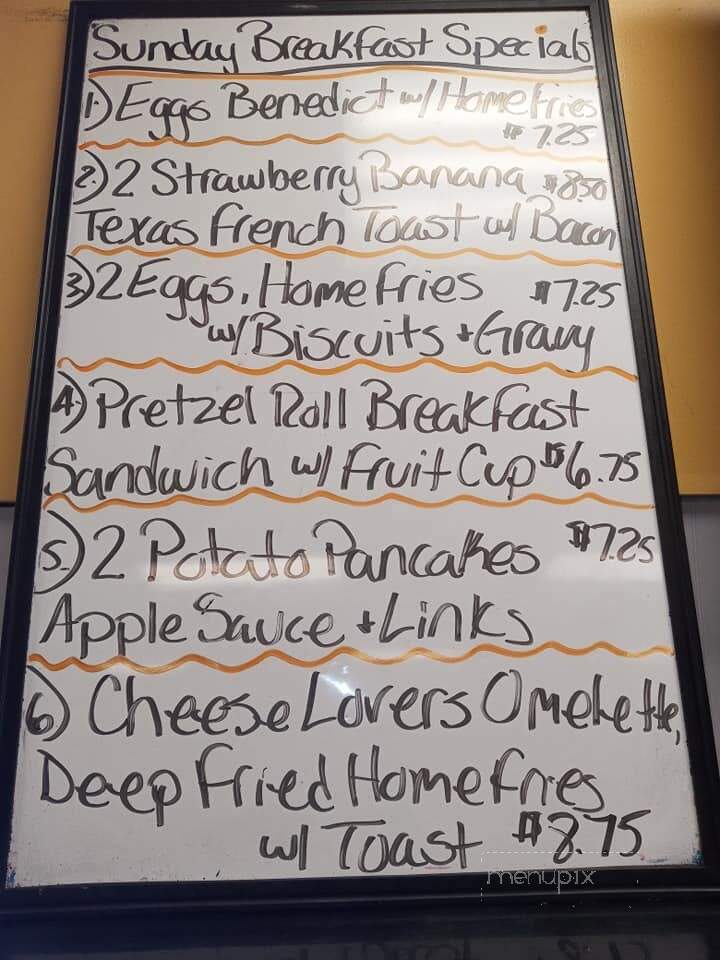 Sunday Breakfast Specials
1.) Eggs Benedict w/ Home Fries
$7.25
2.) 2 Strawberry Banana $8.50
Texas French Toast w/ Bacon
3.) 2 Eggs, Home Fries $7.25
w/ Biscuits + Gravy
4.) Pretzel Roll Breakfast
Sandwich w/ Fruit Cup $6.75
5.) 2 Potato Pancakes $7.25
Apple Sauce + Links
6.) Cheese Lovers Omelette,
Deep Fried Home Fries
w/ Toast $8.75
menupix